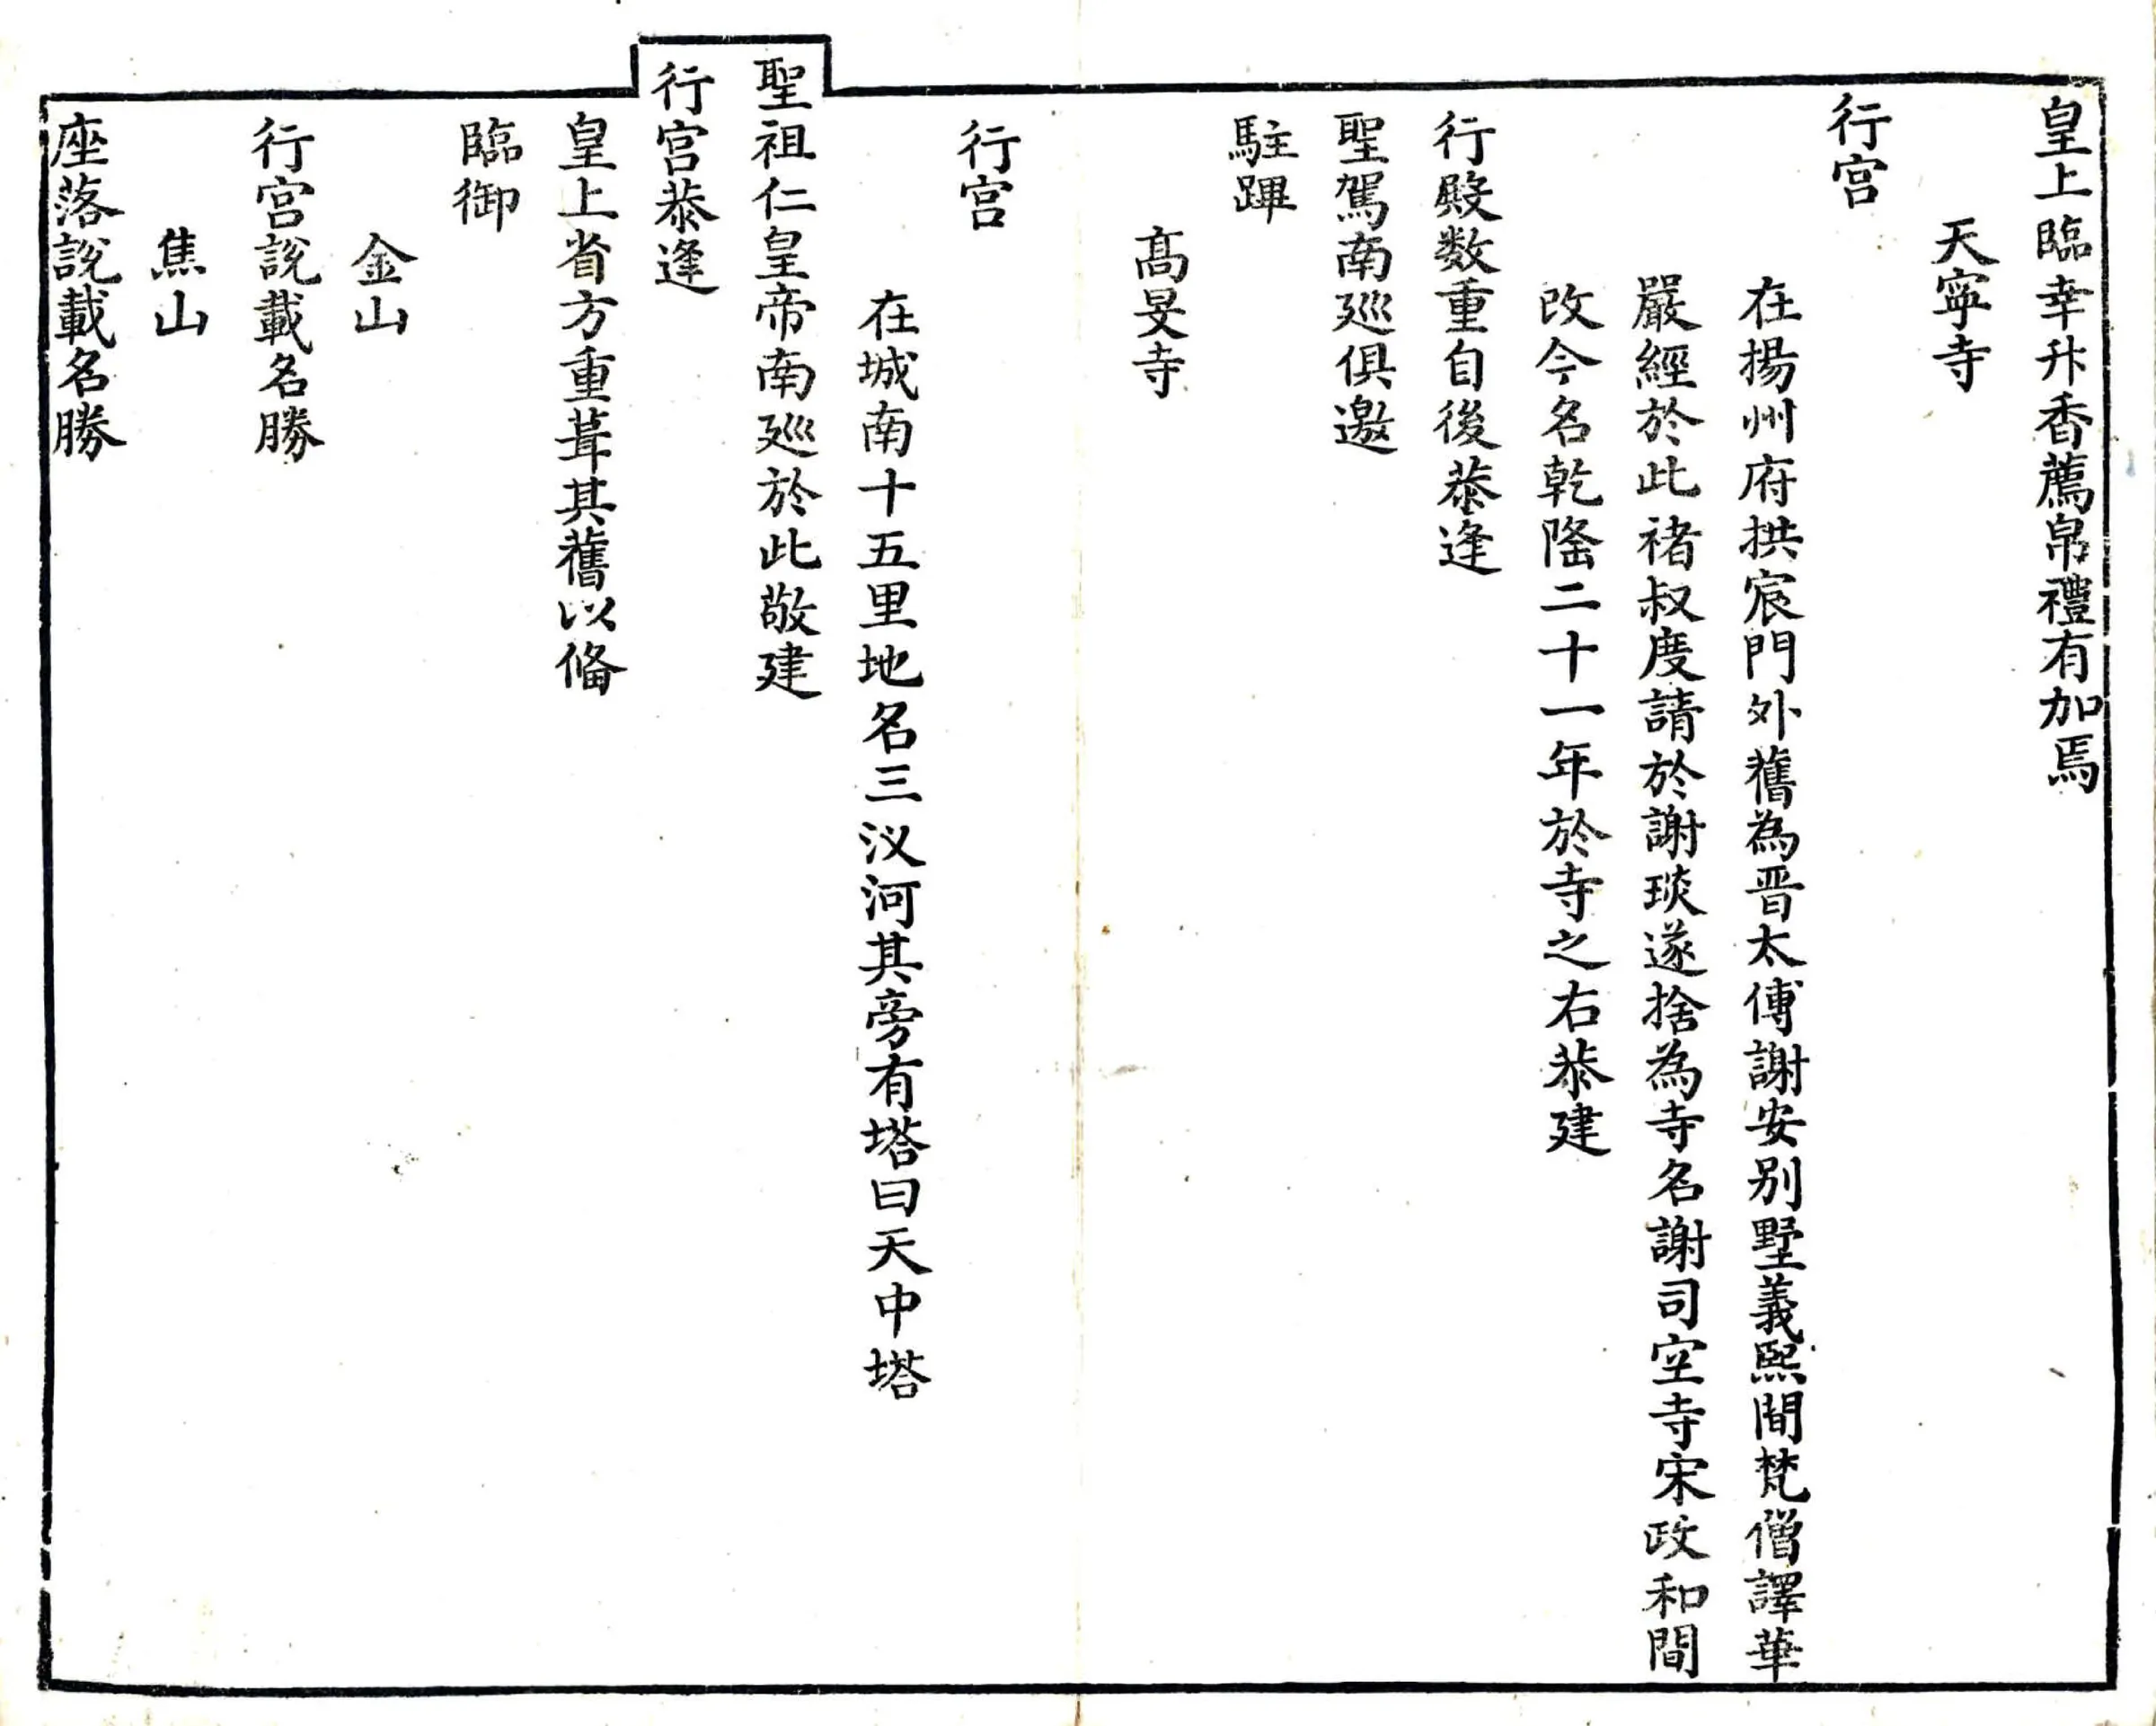 皇上臨幸升香薦帛禮有加焉
天寧寺
行宮
在揚州府拱宸門外舊為晉太傅謝安别墅義熙間梵僧譯華
嚴經於此褚叔度請於謝琰遂捨為寺名謝司空寺宋政和間
改今名乾隆二十一年於寺之右恭建
行殿数重自後恭逢
聖駕南廵俱邀
駐蹕
髙旻寺
行宮
在城南十五里地名三汊河其旁有塔曰天中塔
聖祖仁皇帝南廵於此敬建
行宮恭逢
皇上省方重葺其舊以俻
臨御
金山
行宮說載名勝
焦山
座落說載名勝